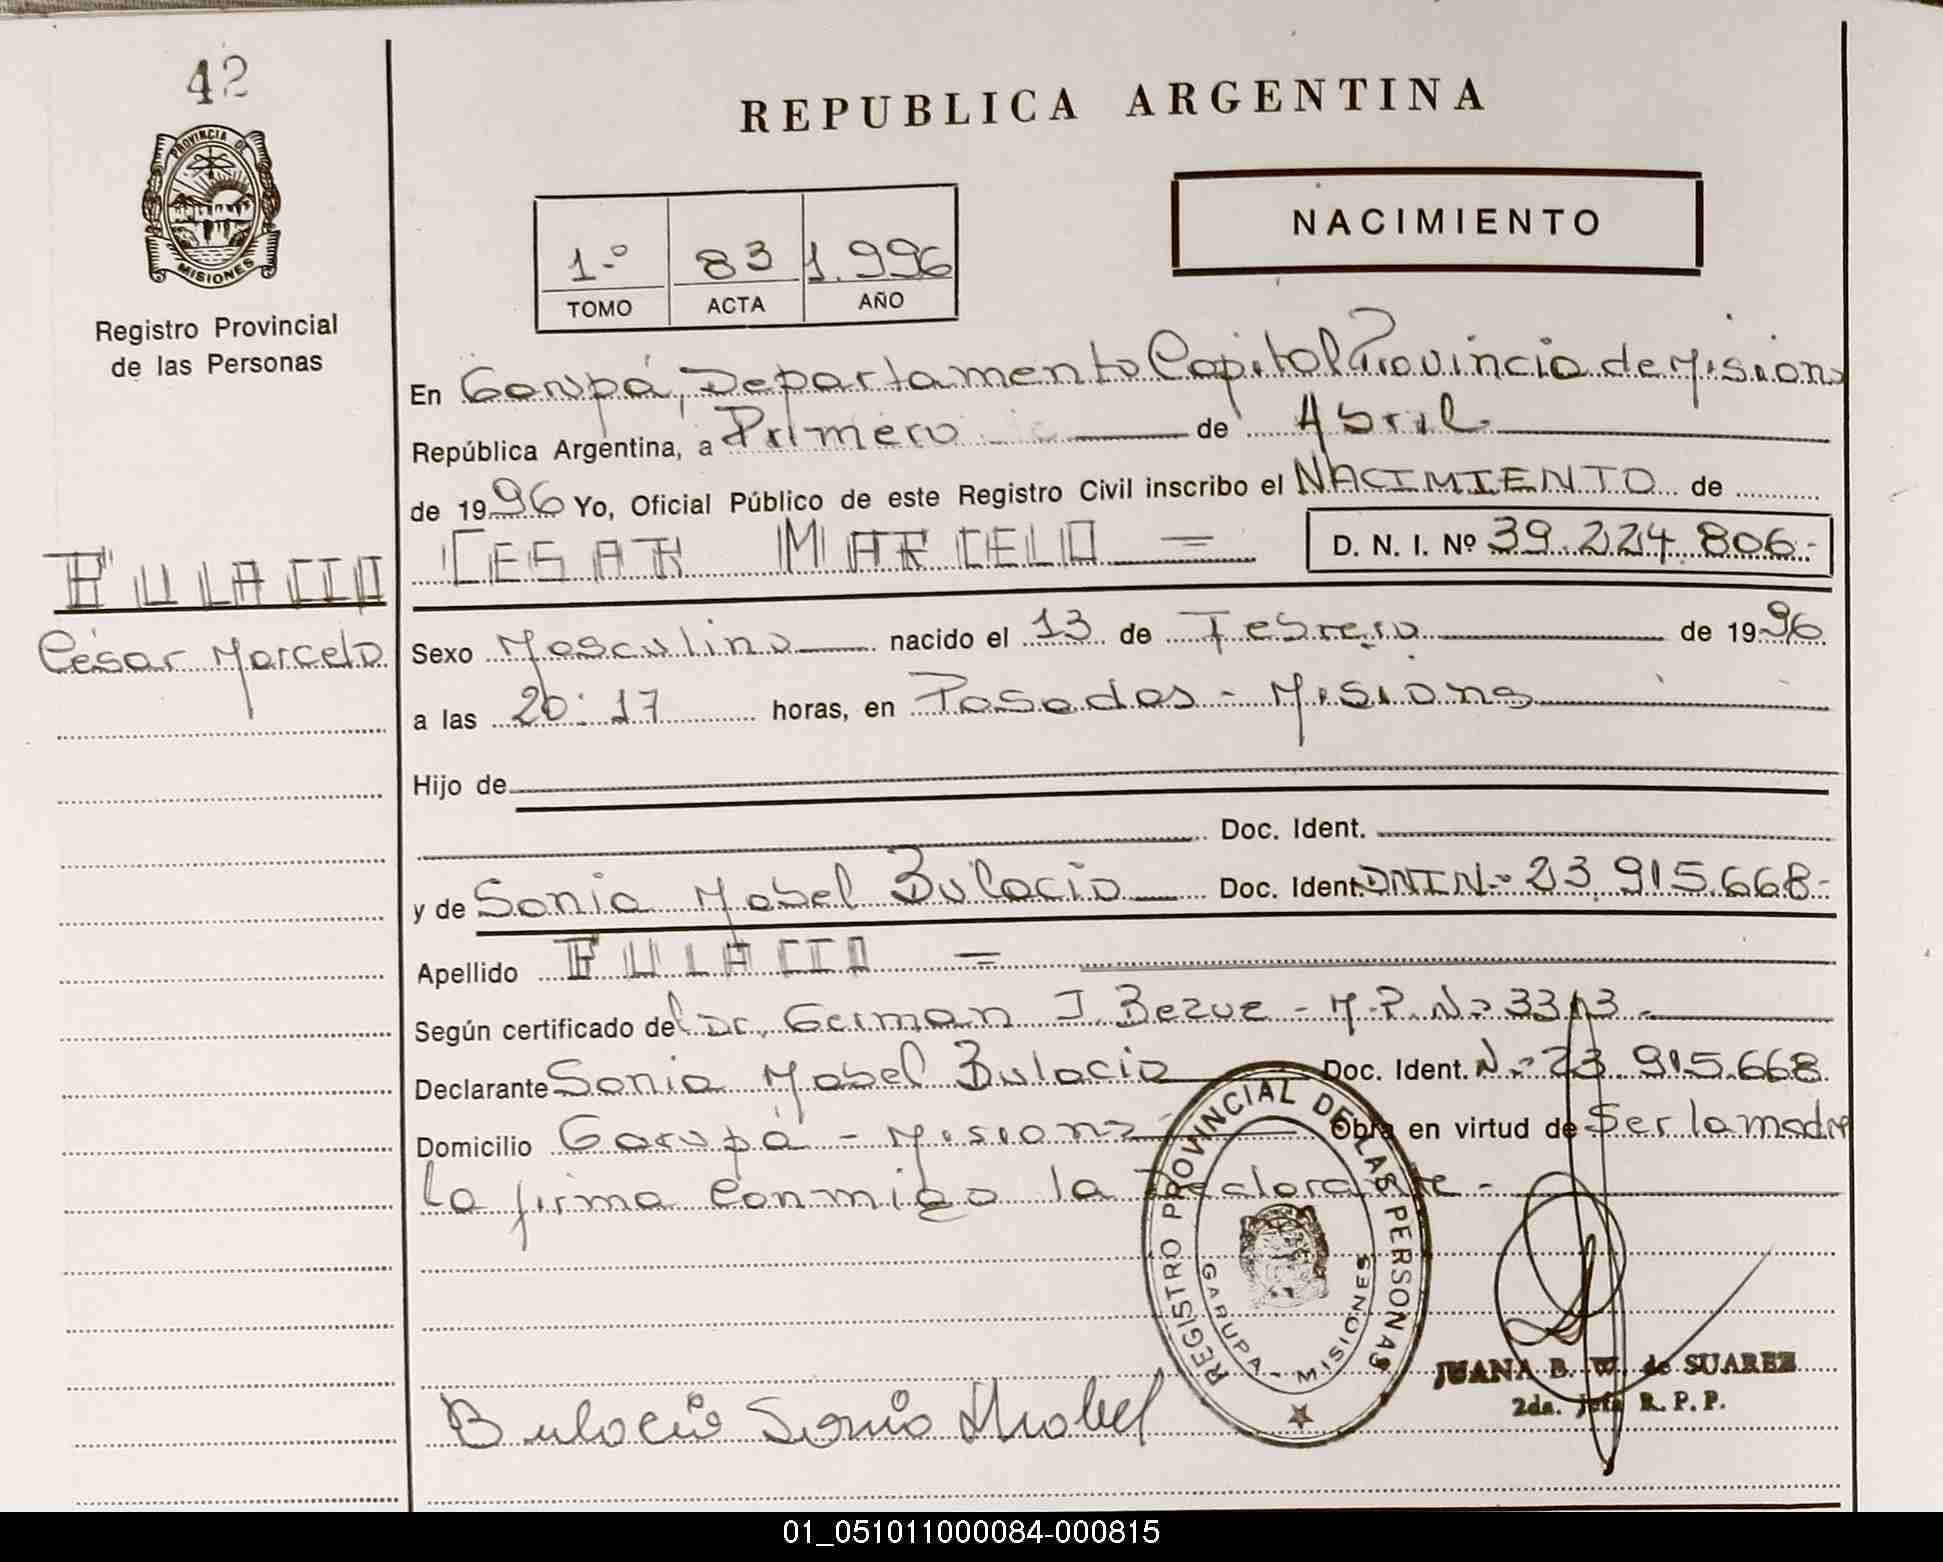 42
REPUBLICA ARGENTINA
PROVINCIA DE
MISIONES
NACIMIENTO
1.º 83 1.996
TOMO ACTA AÑO
Registro Provincial
de las Personas
En Garupá, Departamento Capital Provincia de Misiones
República Argentina, a Primero de Abril.
de 1996 Yo, Oficial Público de este Registro Civil inscribo el NACIMIENTO de
BULACIO
César Marcelo
CESAR MARCELO = D. N. I. Nº 39.224.806.-
Sexo Masculino nacido el 13 de Febrero de 1996
a las 20:17 horas, en Posadas - Misiones
Hijo de
Doc. Ident.
y de Sonia Mabel Bulacio Doc. Ident. DNI Nº 23.915.668-
Apellido BULACIO =
Según certificado del Dr. German J. Bezue - M.P.Nº 3313.-
Declarante Sonia Mabel Bulacio Doc. Ident. Nº 23.915.668
Domicilio Garupá - Misiones Obra en virtud de Ser la madre
La firma conmigo la Declarante -
REGISTRO PROVINCIAL DE LAS PERSONAS
GARUPA - MISIONES
JUANA B. W. de SUAREZ
2da. Jefa R. P. P.
Bulacio Sonia Mabel
01_051011000084-000815